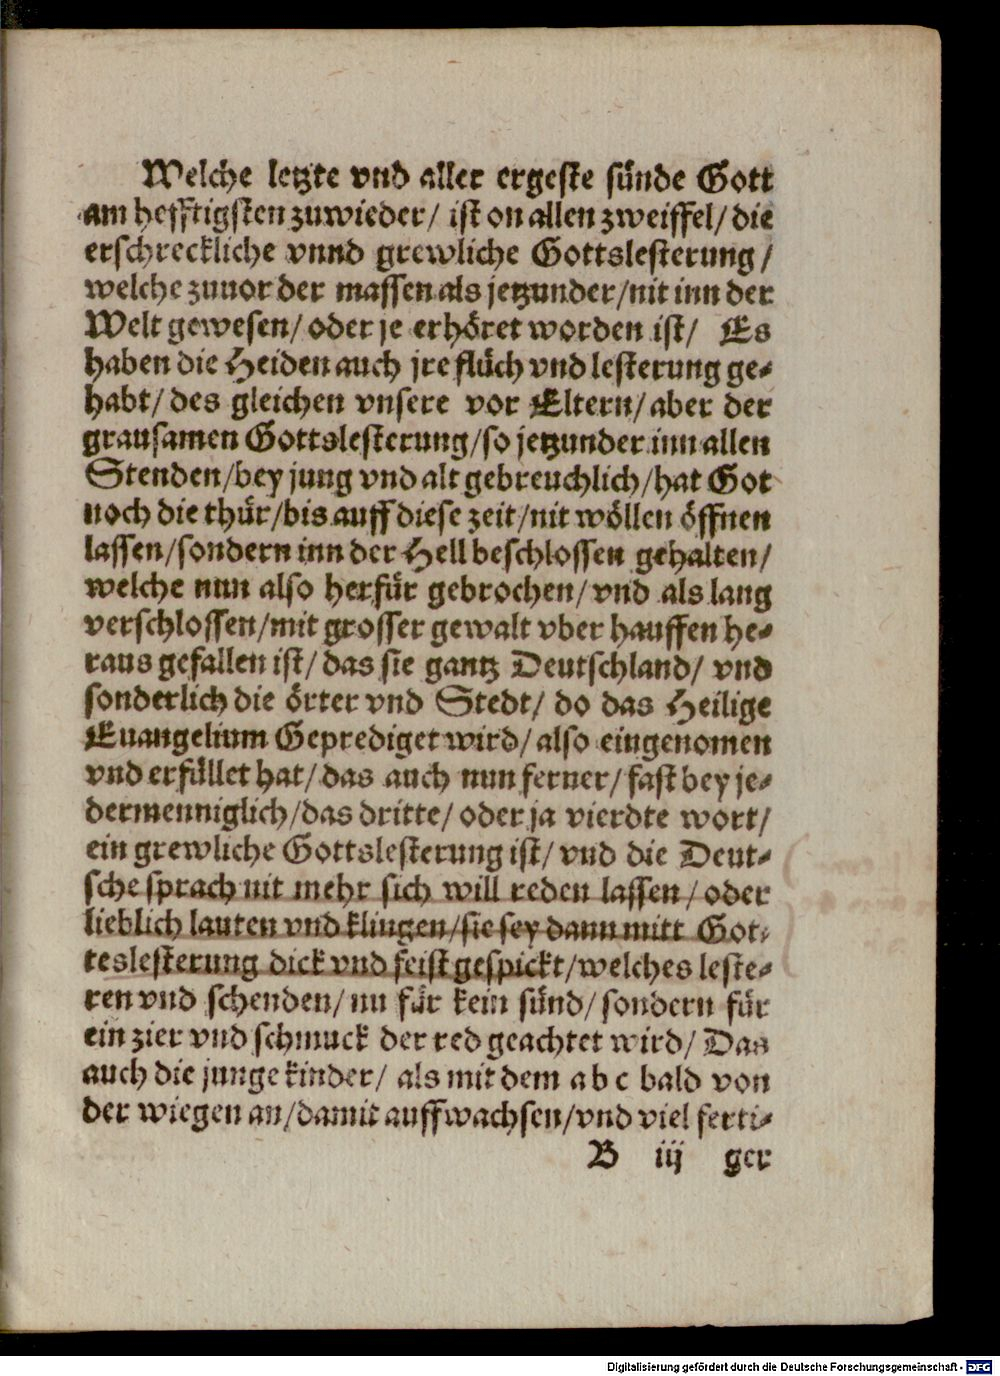 Welche letzte vnd aller ergeste sünde Gott
am hefftigsten zuwieder/ ist on allen zweiffel/ die
erschreckliche vnnd grewliche Gottslesterung/
welche zuuor der massen als jetzunder/nit inn der
Welt gewesen/ oder je erhöret worden ist/ Es
haben die Heiden auch jre flüch vnd lesterung ge-
habt/ des gleichen vnsere vor Eltern/ aber der
grausamen Gottslesterung/so jetzunder inn allen
Stenden/bey jung vnd alt gebreuchlich/hat Got
noch die thür/bis auff diese zeit/nit wöllen öffnen
lassen/sondern inn der Hell beschlossen gehalten/
welche nun also herfür gebrochen/ vnd als lang
verschlossen/mit grosser gewalt vber hauffen he-
raus gefallen ist/ das sie gantz Deutschland/ vnd
sonderlich die örter vnd Stedt/ do das Heilige
Euangelium Geprediget wird/ also eingenomen
vnd erfüllet hat/ das auch nun ferner/ fast bey je-
dermenniglich/das dritte/ oder ja vierdte wort/
ein grewliche Gottslesterung ist/ vnd die Deut-
sche sprach nit mehr sich will reden lassen/ oder
lieblich lauten vnd klingen/sie sey dann mitt Got-
teslesterung dick vnd feist gespickt/welches leste-
ren vnd schenden/ nu für kein sünd/ sondern für
ein zier vnd schmuck der red geachtet wird/ Das
auch die junge kinder/ als mit dem a b c bald von
der wiegen an/damit auffwachsen/vnd viel ferti-
B iij ger
Digitalisierung gefördert durch die Deutsche Forschungsgemeinschaft - DFG